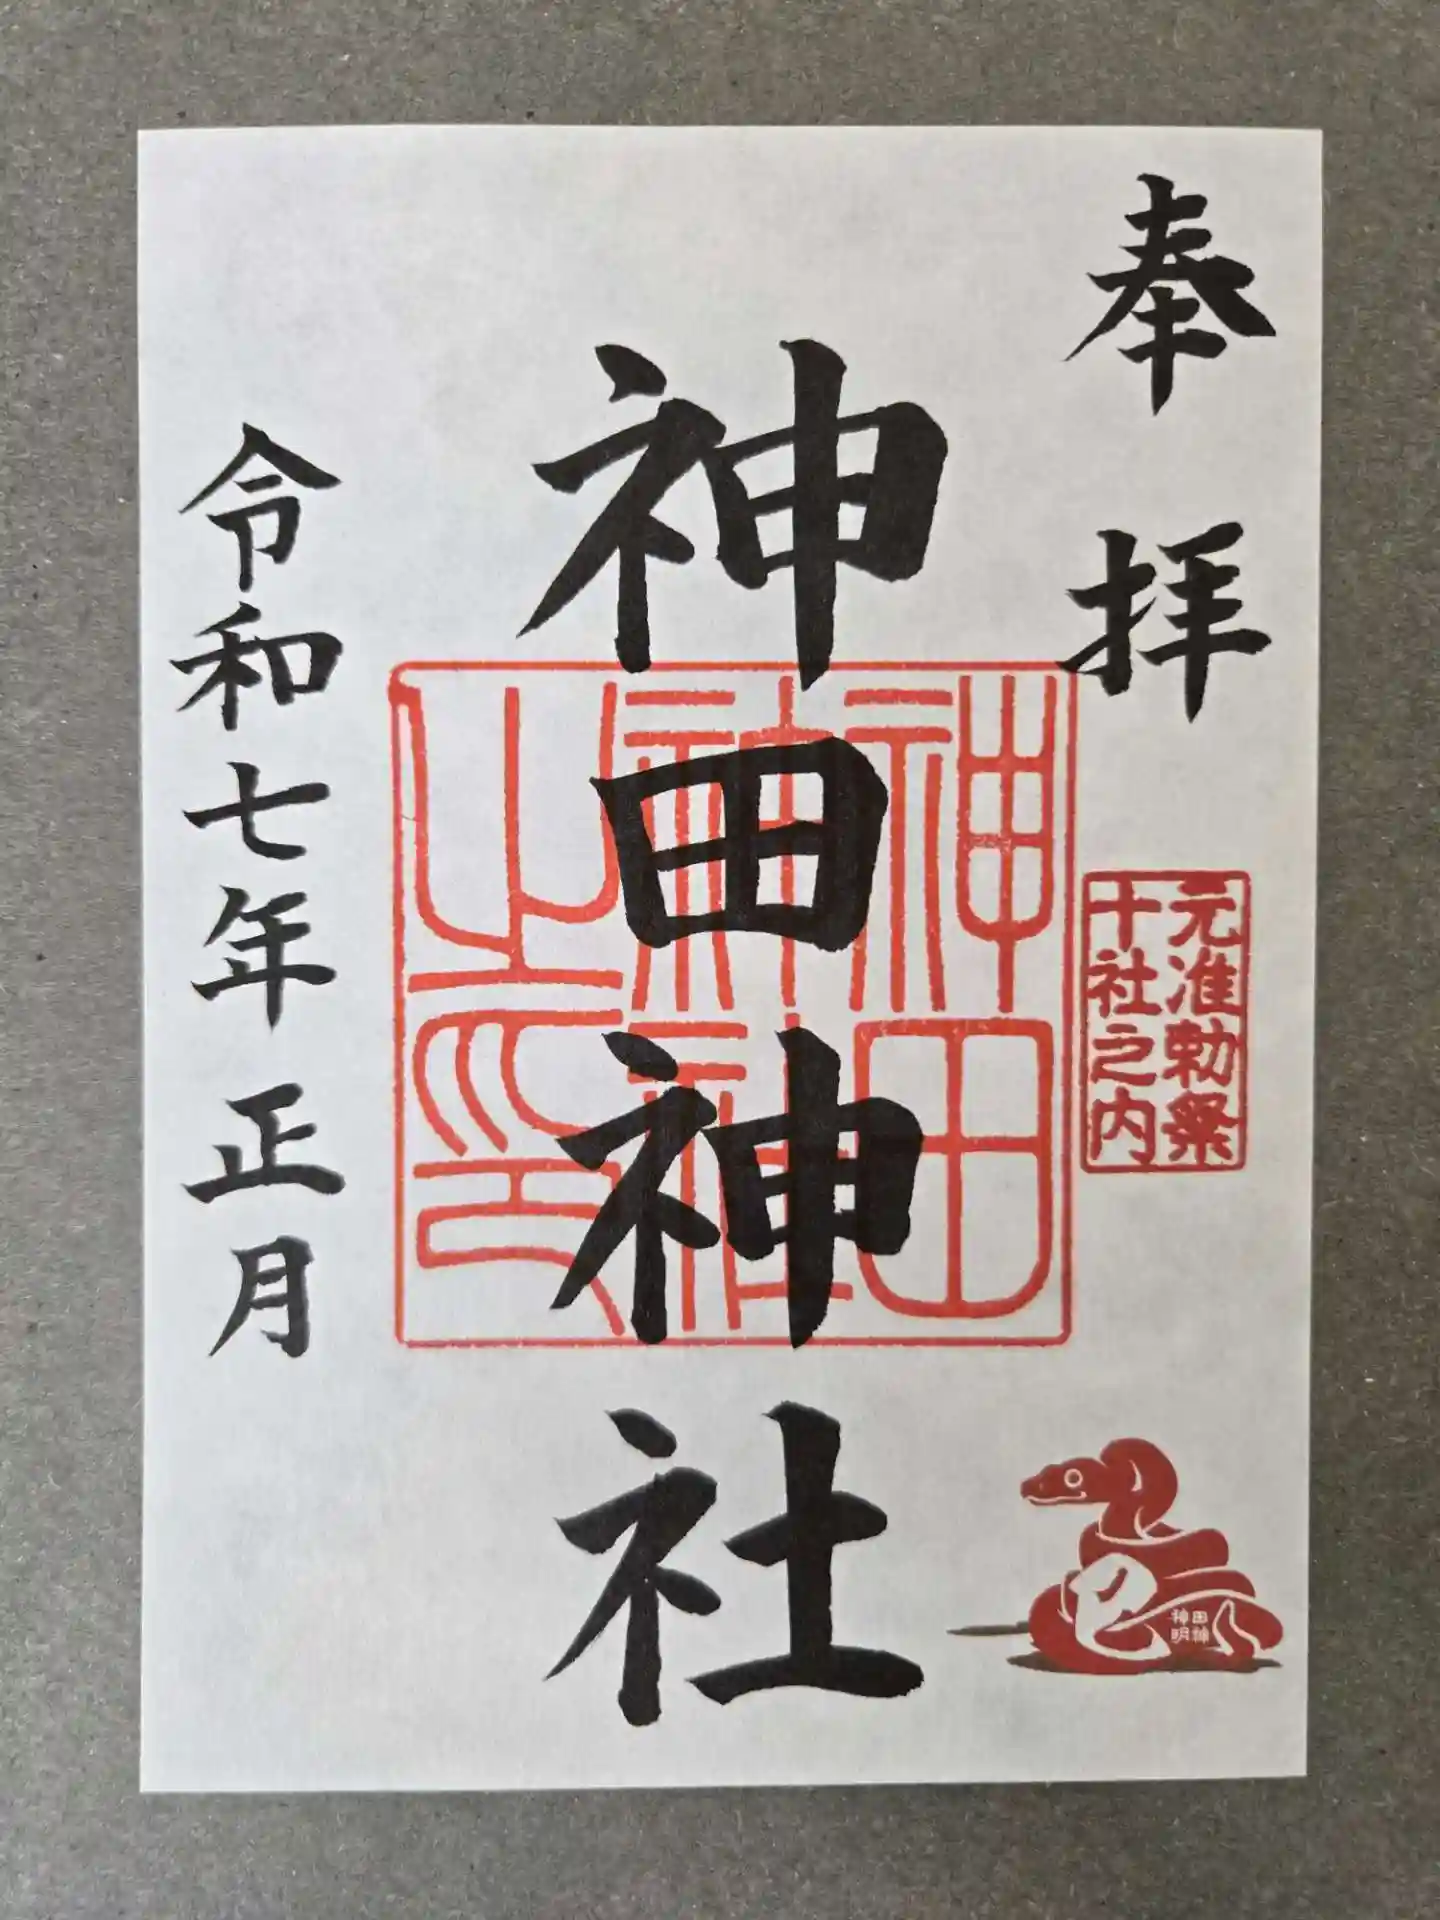 奉拝
元准勅祭
十社之内
巳
神田
明神
神田神社
神田
神社
之印
令和七年正月